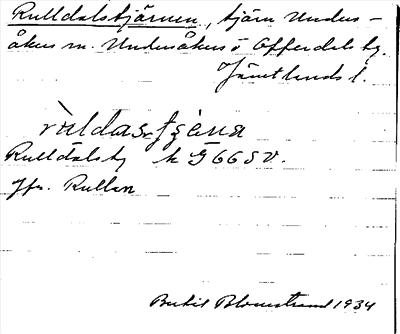 Rulldalstjärnen, tjärn Under-
åkers sn. Undersåkers o Offerdals tg.
Jämtlands l.
Rulldalstj k G66SV.
Jfr. Rullan
Bertil Blomstrand 1934